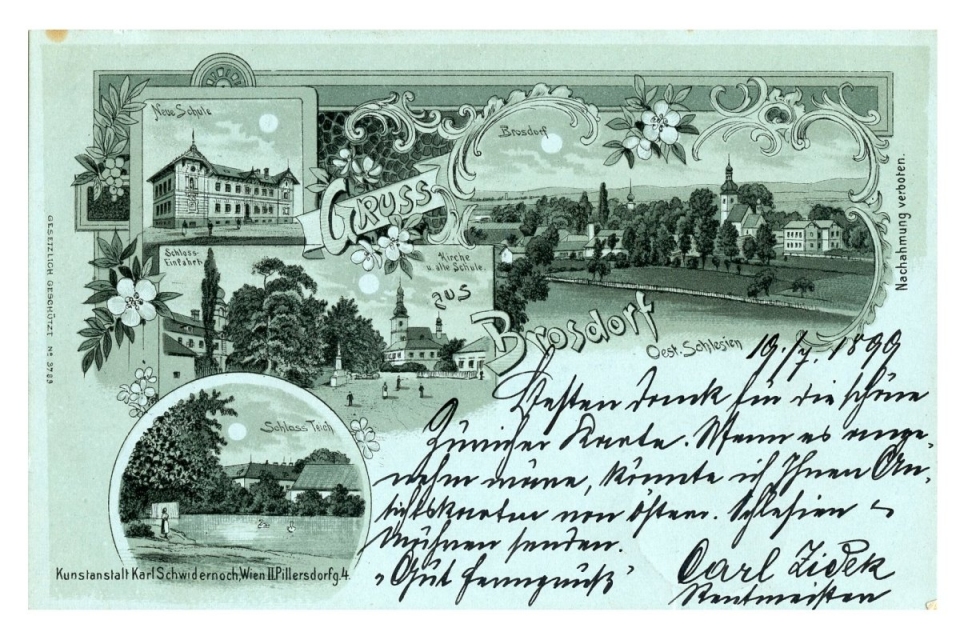 Neue Schule
Brosdorf
Gruss
Schloss-
Einfahrt
Kirche
u. alte Schule
aus
Brosdorf
Oest. Schlesien
Schloss Teich
GESETZLICH GESCHÜTZT Nº 3783
Nachahmung verboten.
19./7. 1899
Besten Dank für die schöne
Züricher Karte. Wenn es ange-
nehm wäre, könnte ich Ihnen An-
sichtskarten von österr. Schlesien &
Mähren senden.
"Gut Ferngruß"
Carl Zidek
Rentmeister
Kunstanstalt Karl Schwidernoch, Wien II. Pillersdorfg. 4.